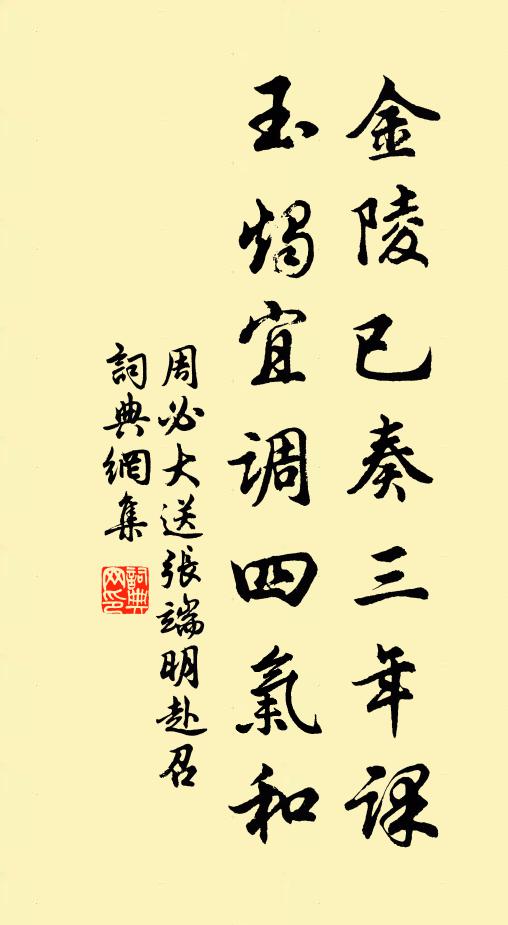 金陵已奏三年課
玉燭宜調四氣和
周必大送張端明赴召
詞典網集
詞典网印